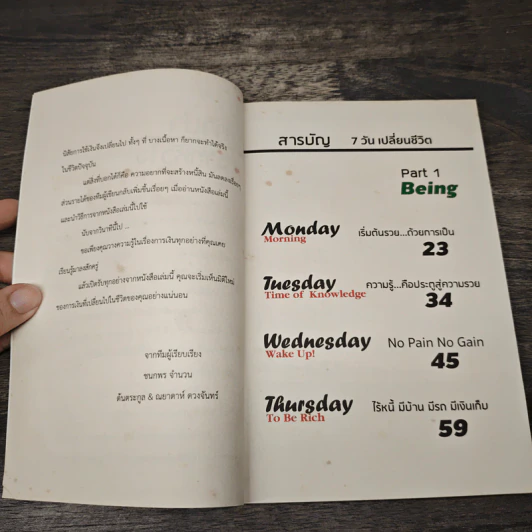 นิสัยการใช้เงินจึงเปลี่ยนไป ทั้งๆ ที่ บางเนื้อหา ก็ยากจะทำได้จริง
ในชีวิตปัจจุบัน
แต่สิ่งที่บอกได้ก็คือ ความอยากที่จะสร้างหนี้สิน มันลดลงเรื่อยๆ
ส่วนรายได้ของทีมผู้เขียนกลับเพิ่มขึ้นเรื่อยๆ เมื่ออ่านหนังสือเล่มนี้
และนำวิธีการจากหนังสือเล่มนี้ไปใช้
นับจากวินาทีนี้ไป ...
ขอเพียงคุณวางความรู้ในเรื่องการเงินทุกอย่างที่คุณเคย
เรียนรู้มาลงสักครู่
แล้วเปิดรับทุกอย่างจากหนังสือเล่มนี้ คุณจะเริ่มเห็นมิติใหม่
ของการเงินที่เปลี่ยนไปในชีวิตของคุณอย่างแน่นอน
จากทีมผู้เรียบเรียง
ชนกพร จำนวน
ต้นตระกูล & ณยาดาห์ ดวงจันทร์
สารบัญ 7 วัน เปลี่ยนชีวิต
Part 1
Being
Monday เริ่มต้นรวย...ด้วยการเป็น
Morning 23
Tuesday ความรู้...คือประตูสู่ความรวย
Time of Knowledge 34
Wednesday No Pain No Gain
Wake Up! 45
Thursday ไร้หนี้ มีบ้าน มีรถ มีเงินเก็บ
To Be Rich 59